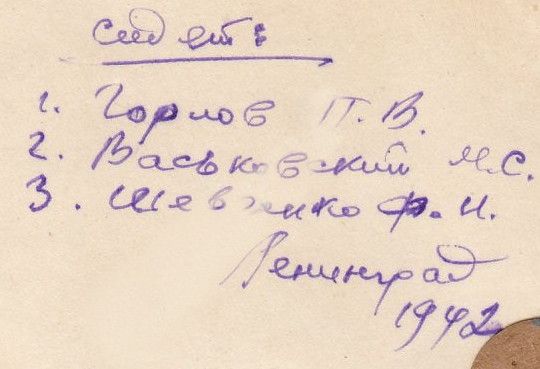 сидят:
1. Горлов П.В.
2. Васьковский М.С.
3. Шевченко Ф.И.
Ленинград
1942